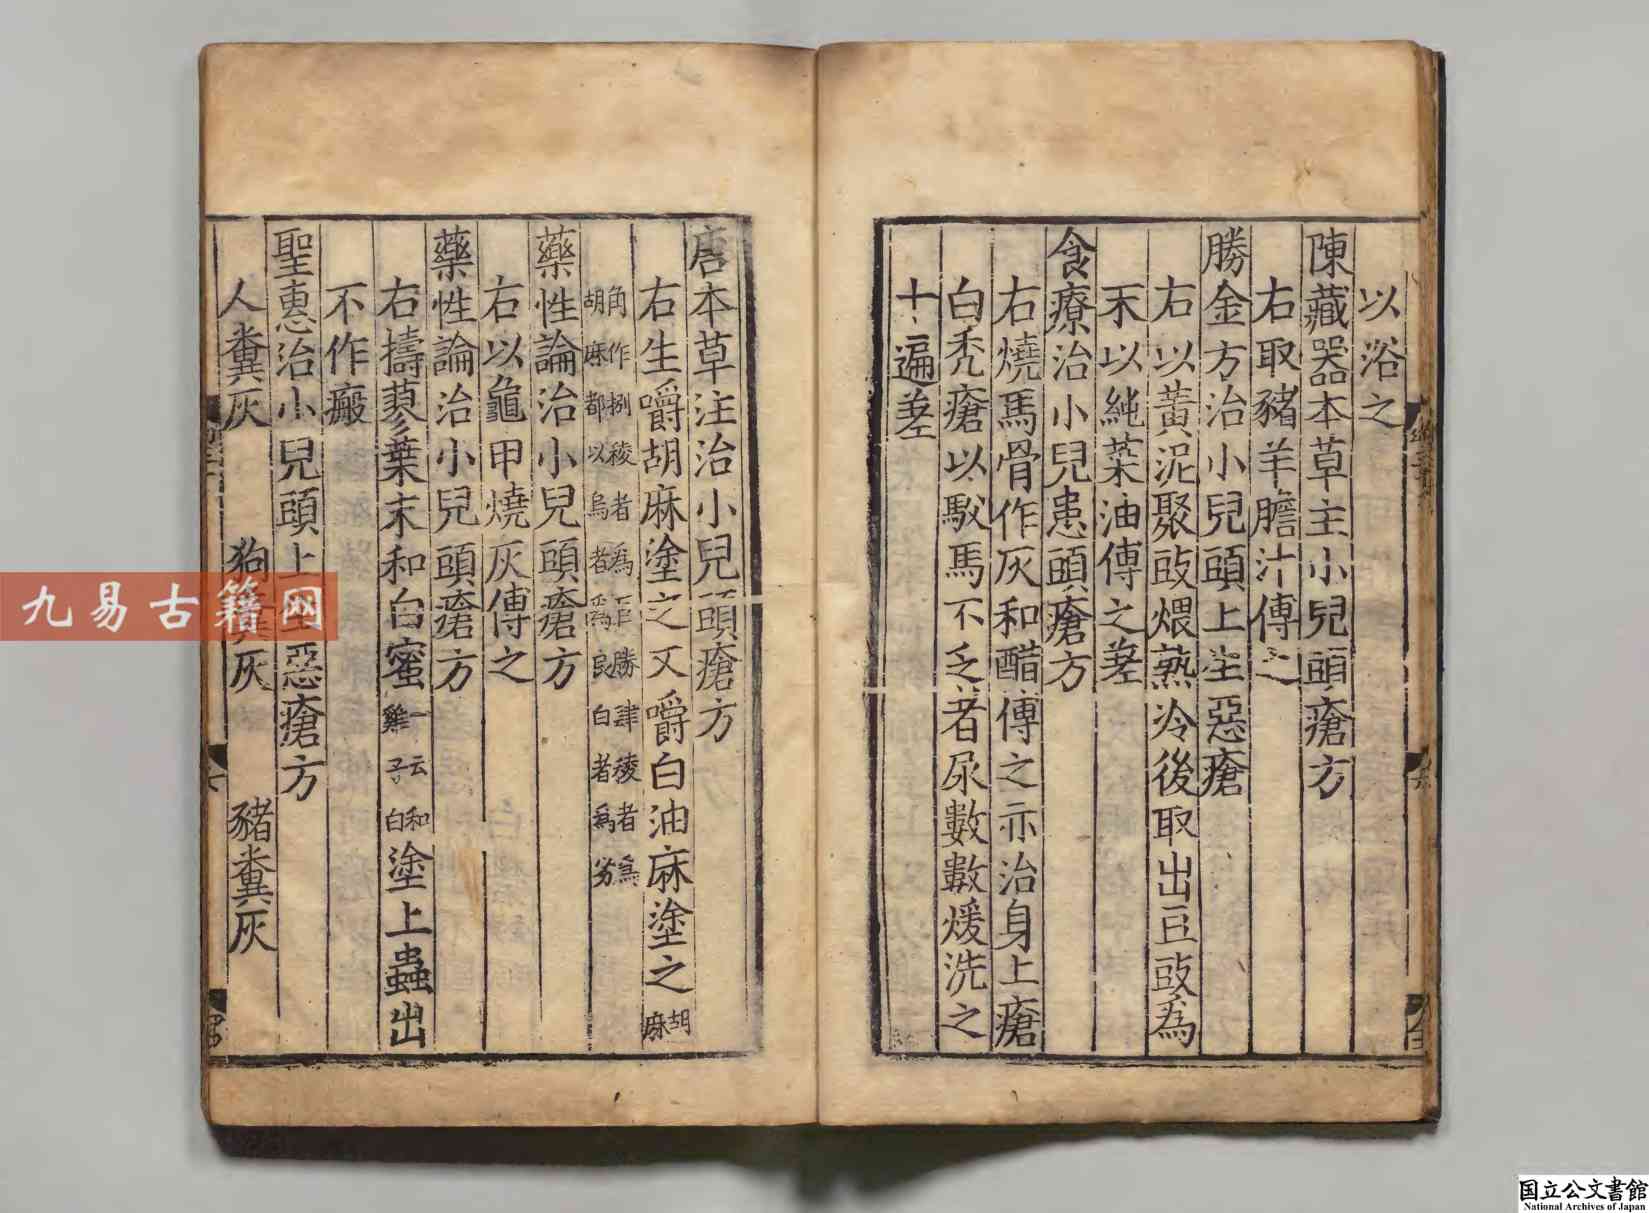 以浴之
陳藏器本草主小兒頭瘡方
右取豬羊膽汁傅之
勝金方治小兒頭上生惡瘡
右以黃泥聚豉煨熟冷後取出豆豉爲
末以純菜油傅之差
食療治小兒患頭瘡方
右燒馬骨作灰和醋傅之亦治身上瘡
白禿瘡以馭馬不乏者尿數數煖洗之
十遍差
唐本草注治小兒頭瘡方
右生嚼胡麻塗之又嚼白油麻塗之胡麻
角作捌稜者爲巨勝肆稜者爲
胡麻都以烏者爲良白者爲劣
藥性論治小兒頭瘡方
右以龜甲燒灰傅之
藥性論治小兒頭瘡方
右擣蓼葉末和白蜜一云和雞子白塗上蟲出
不作瘢
聖惠治小兒頭上生惡瘡方
人糞灰 狗糞灰 豬糞灰
九易古籍网
国立公文書館
National Archives of Japan